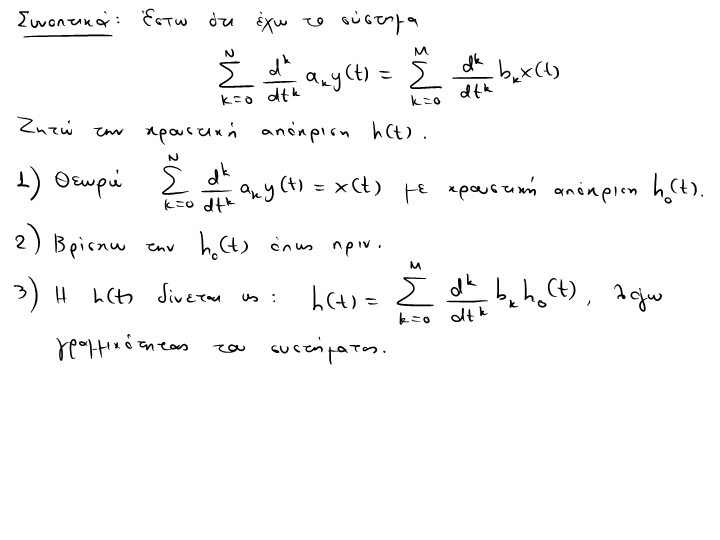 Συνοπτικά: Έστω ότι έχω το σύστημα
\sum_{k=0}^{N} \frac{d^k}{dt^k} a_k y(t) = \sum_{k=0}^{M} \frac{d^k}{dt^k} b_k x(t)
Ζητώ την κρουστική απόκριση h(t).
1) Θεωρώ \sum_{k=0}^{N} \frac{d^k}{dt^k} a_k y(t) = x(t) με κρουστική απόκριση h_0(t).
2) Βρίσκω την h_0(t) όπως πριν.
3) Η h(t) δίνεται ως: h(t) = \sum_{k=0}^{M} \frac{d^k}{dt^k} b_k h_0(t), λόγω
γραμμικότητας του συστήματος.